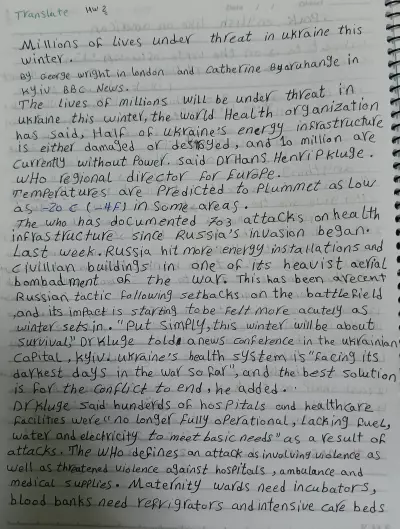 Translate HW 2
Millions of lives under threat in ukraine this
winter.
By George wright in london and Catherine Byaruhange in
Kyiv BBC News.
The lives of millions will be under threat in
ukraine this winter, the World Health organization
has said, Half of ukraine's energy infrastructure
is either damaged or destroyed, and 10 million are
currently without Power, said Dr Hans Henri P kluge.
WHO regional director for Europe.
Temperatures are Predicted to Plummet as low
as -20 C (-4F) in Some areas.
The who has documented 703 attacks on health
infrastructure since Russia's invasion began.
Last week. Russia hit more energy installations and
civillian buildings in one of its heavist aerial
bombadment of the war. This has been a recent
Russian tactic following setbacks on the battlefield
,and its impact is starting to be felt more acutely as
winter sets in. "Put simply, this winter will be about
survival," Dr Kluge told a news conference in the ukrainian
capital, Kyiv. ukraine's health system is "facing its
darkest days in the war so far", and the best solution
is for the conflict to end, he added.
Dr Kluge said hunderds of hospitals and healthcare
facilities were "no longer fully operational, Lacking fuel,
water and electricity to meet basic needs" as a result of
attacks. The WHO defines an attack as involving violence as
well as threatened violence against hospitals, ambulance and
medical supplies. Maternity wards need incubators,
blood banks need refrigrators and intensive care beds